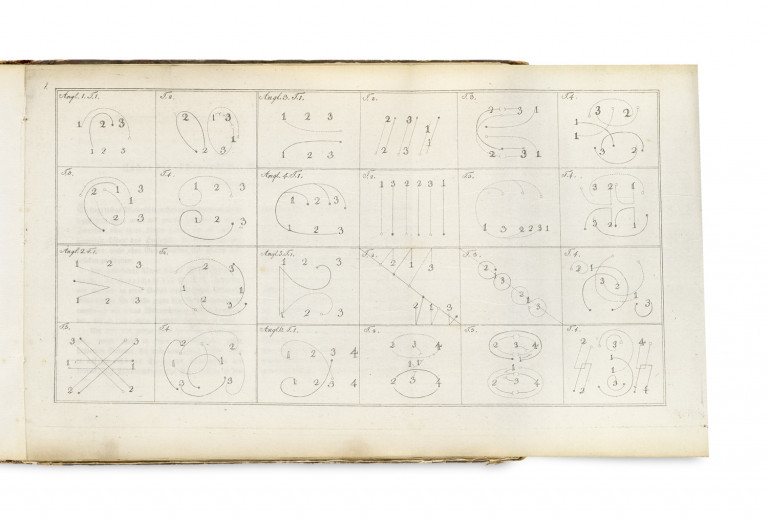 1
Angl. 1. T. 1.
1 2 3
1 2 3
T. 2.
2 1 3
1
2 3
Angl. 3. T. 1.
1 2 3
1 2 3
T. 2.
2 3 1
1
2 3 1
T. 3.
2 3 1
2 3 1
T. 4.
3 2
1
3 2
T. 3.
2 1 3
1
2 3
T. 4.
1 2 3
1 2 3
Angl. 4. T. 1.
1 2 3
1 2 3
T. 2.
1 3 2 2 3 1
T. 3.
1 3 2 2 3 1
T. 4.
3 2 1
3 2 1
Angl. 2. T. 1.
1 2 3
1 2 3
T. 2.
1 2 3
1 2 3
T. 1.
1 2 3
1 2 3
T. 2.
2 1 3
2 1 3
T. 3.
2
3
1
1
2
3
T. 4.
2 1
2
3
1 3
T. 3.
3 3
1 1
2 2
T. 4.
2 2
1
3 3
T. 1.
1 2 3 4
1 2 3 4
T. 2.
2 3 4
1 1
2 3 4
T. 3.
2 3 4
1
1
2 3 4
T. 4.
2 3 4
1
1
2 3 4